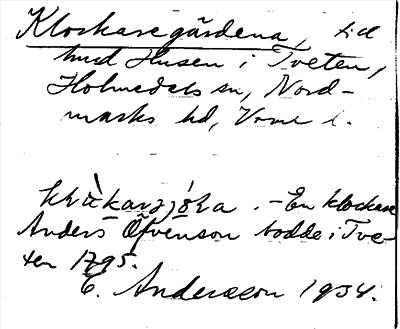 Klockaregärdena, till
hud Husen i Tveten,
Holmedals sn, Nord-
marks hd, Vrml l.
En klockare
Anders Öfvenson bodde i Tve-
ten 1795.
E. Andersson 1934.